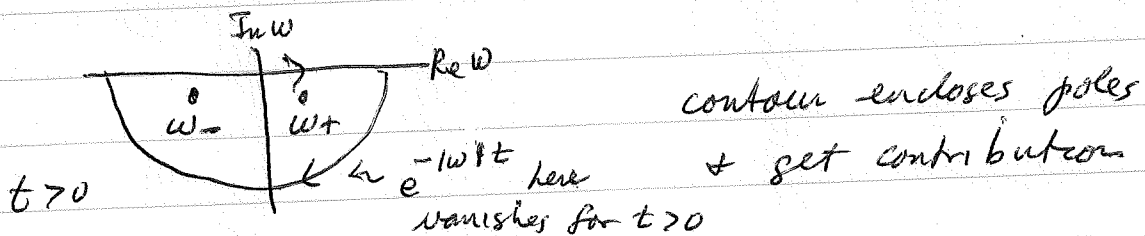 Im ω
Re ω
ω- ω+
contour encloses poles
& get contribution
t>0
e^{-|ω|t} here
vanishes for t>0